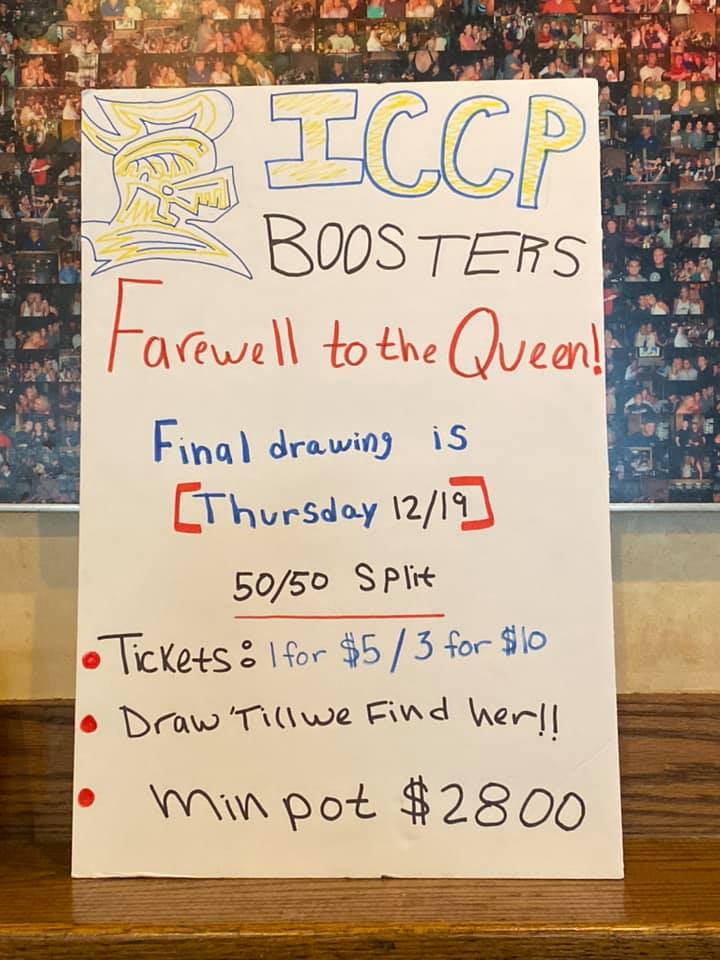 ICCP
BOOSTERS
Farewell to the Queen!
Final drawing is
[Thursday 12/19]
50/50 Split
• Tickets: 1 for $5 / 3 for $10
• Draw 'Till we Find her!!
• Min pot $2800